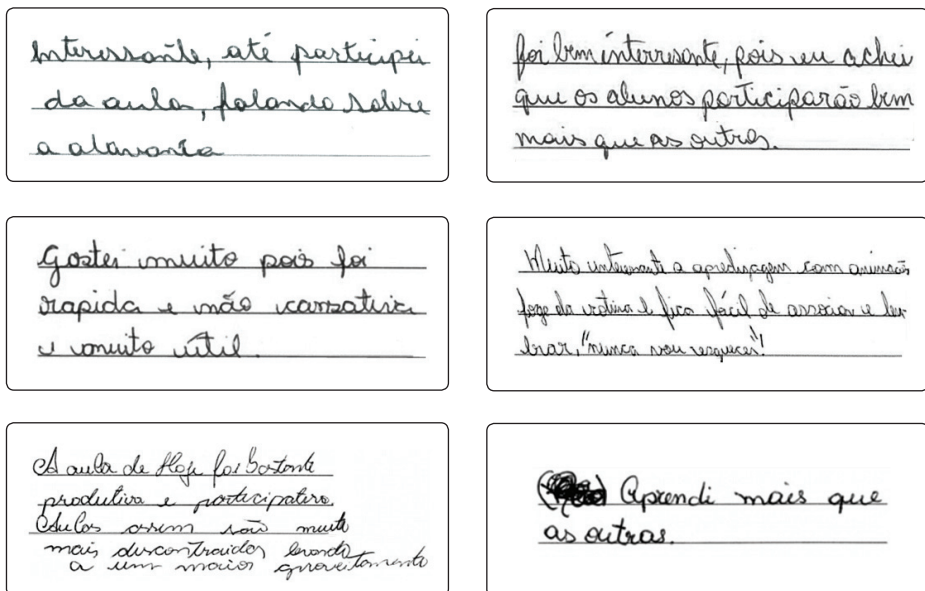 Interessante, até participei
da aula, falando sobre
a alavanca
foi bem interresante, pois eu achei
que os alunos participarão bem
mais que as outras.
Gostei muito pois foi
rapida e não cansativa
e muito útil.
Muito interessante a aprendizagem com animação
foge da rotina e fica fácil de associar e lem
brar, "nunca vou esquecer"!
A aula de Hoje foi bastante
produtiva e participativa.
Aulas assim são muito
mais descontraidas levando
a um maior aproveitamento
Aprendi mais que
as outras.